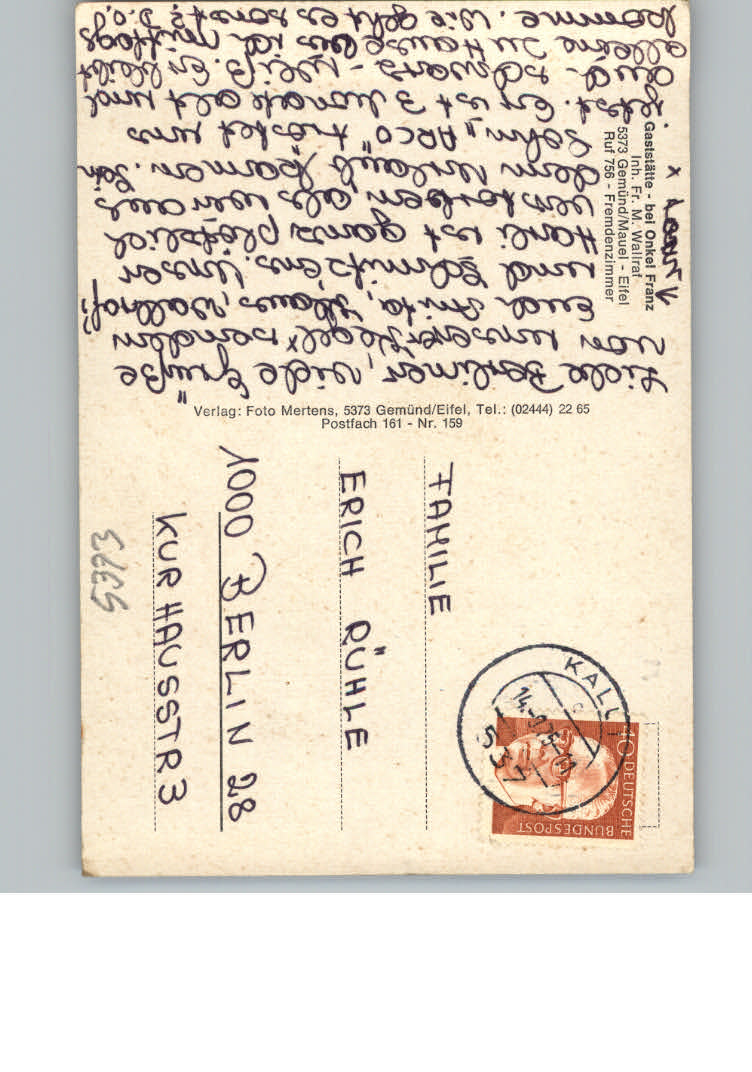 Liebe Berliner, viele Grüße
von unserer Kegel x senden
Euch Anita, Klaus, Wallraf,
und Schmitz'ens. Unser
ist ganz plötzlich
verstorben als wir aus
dem Urlaub kamen. Sein
Sohn "ARCO" tröstet uns
jetzt. Er ist 3 Monate alt und
schwarz - weiß. Er bleibt
alleine zu Hause bis ich mittags
komme. Wie geht es sonst?
x tour
Gaststätte - bei Onkel Franz
Inh. Fr. M. Wallraf
5373 Gemünd/Mauel - Eifel
Ruf 756 - Fremdenzimmer
Verlag: Foto Mertens, 5373 Gemünd/Eifel, Tel.: (02444) 22 65
Postfach 161 - Nr. 159
FAMILIE
ERICH RÜHLE
1000 BERLIN 28
KURHAUSSTR 3
5373
KALL
537
40 DEUTSCHE
BUNDESPOST